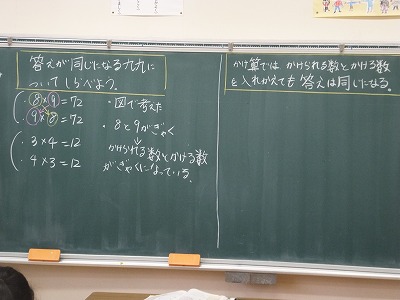 答えが同じになる九九に
ついてしらべよう。
・8×9=72
・9×8=72
・3×4=12
・4×3=12
・図で考えた
・8と9がぎゃく
↓
かけられる数とかける数
がぎゃくになっている。
かけ算では、かけられる数とかける数
を入れかえても答えは同じになる。